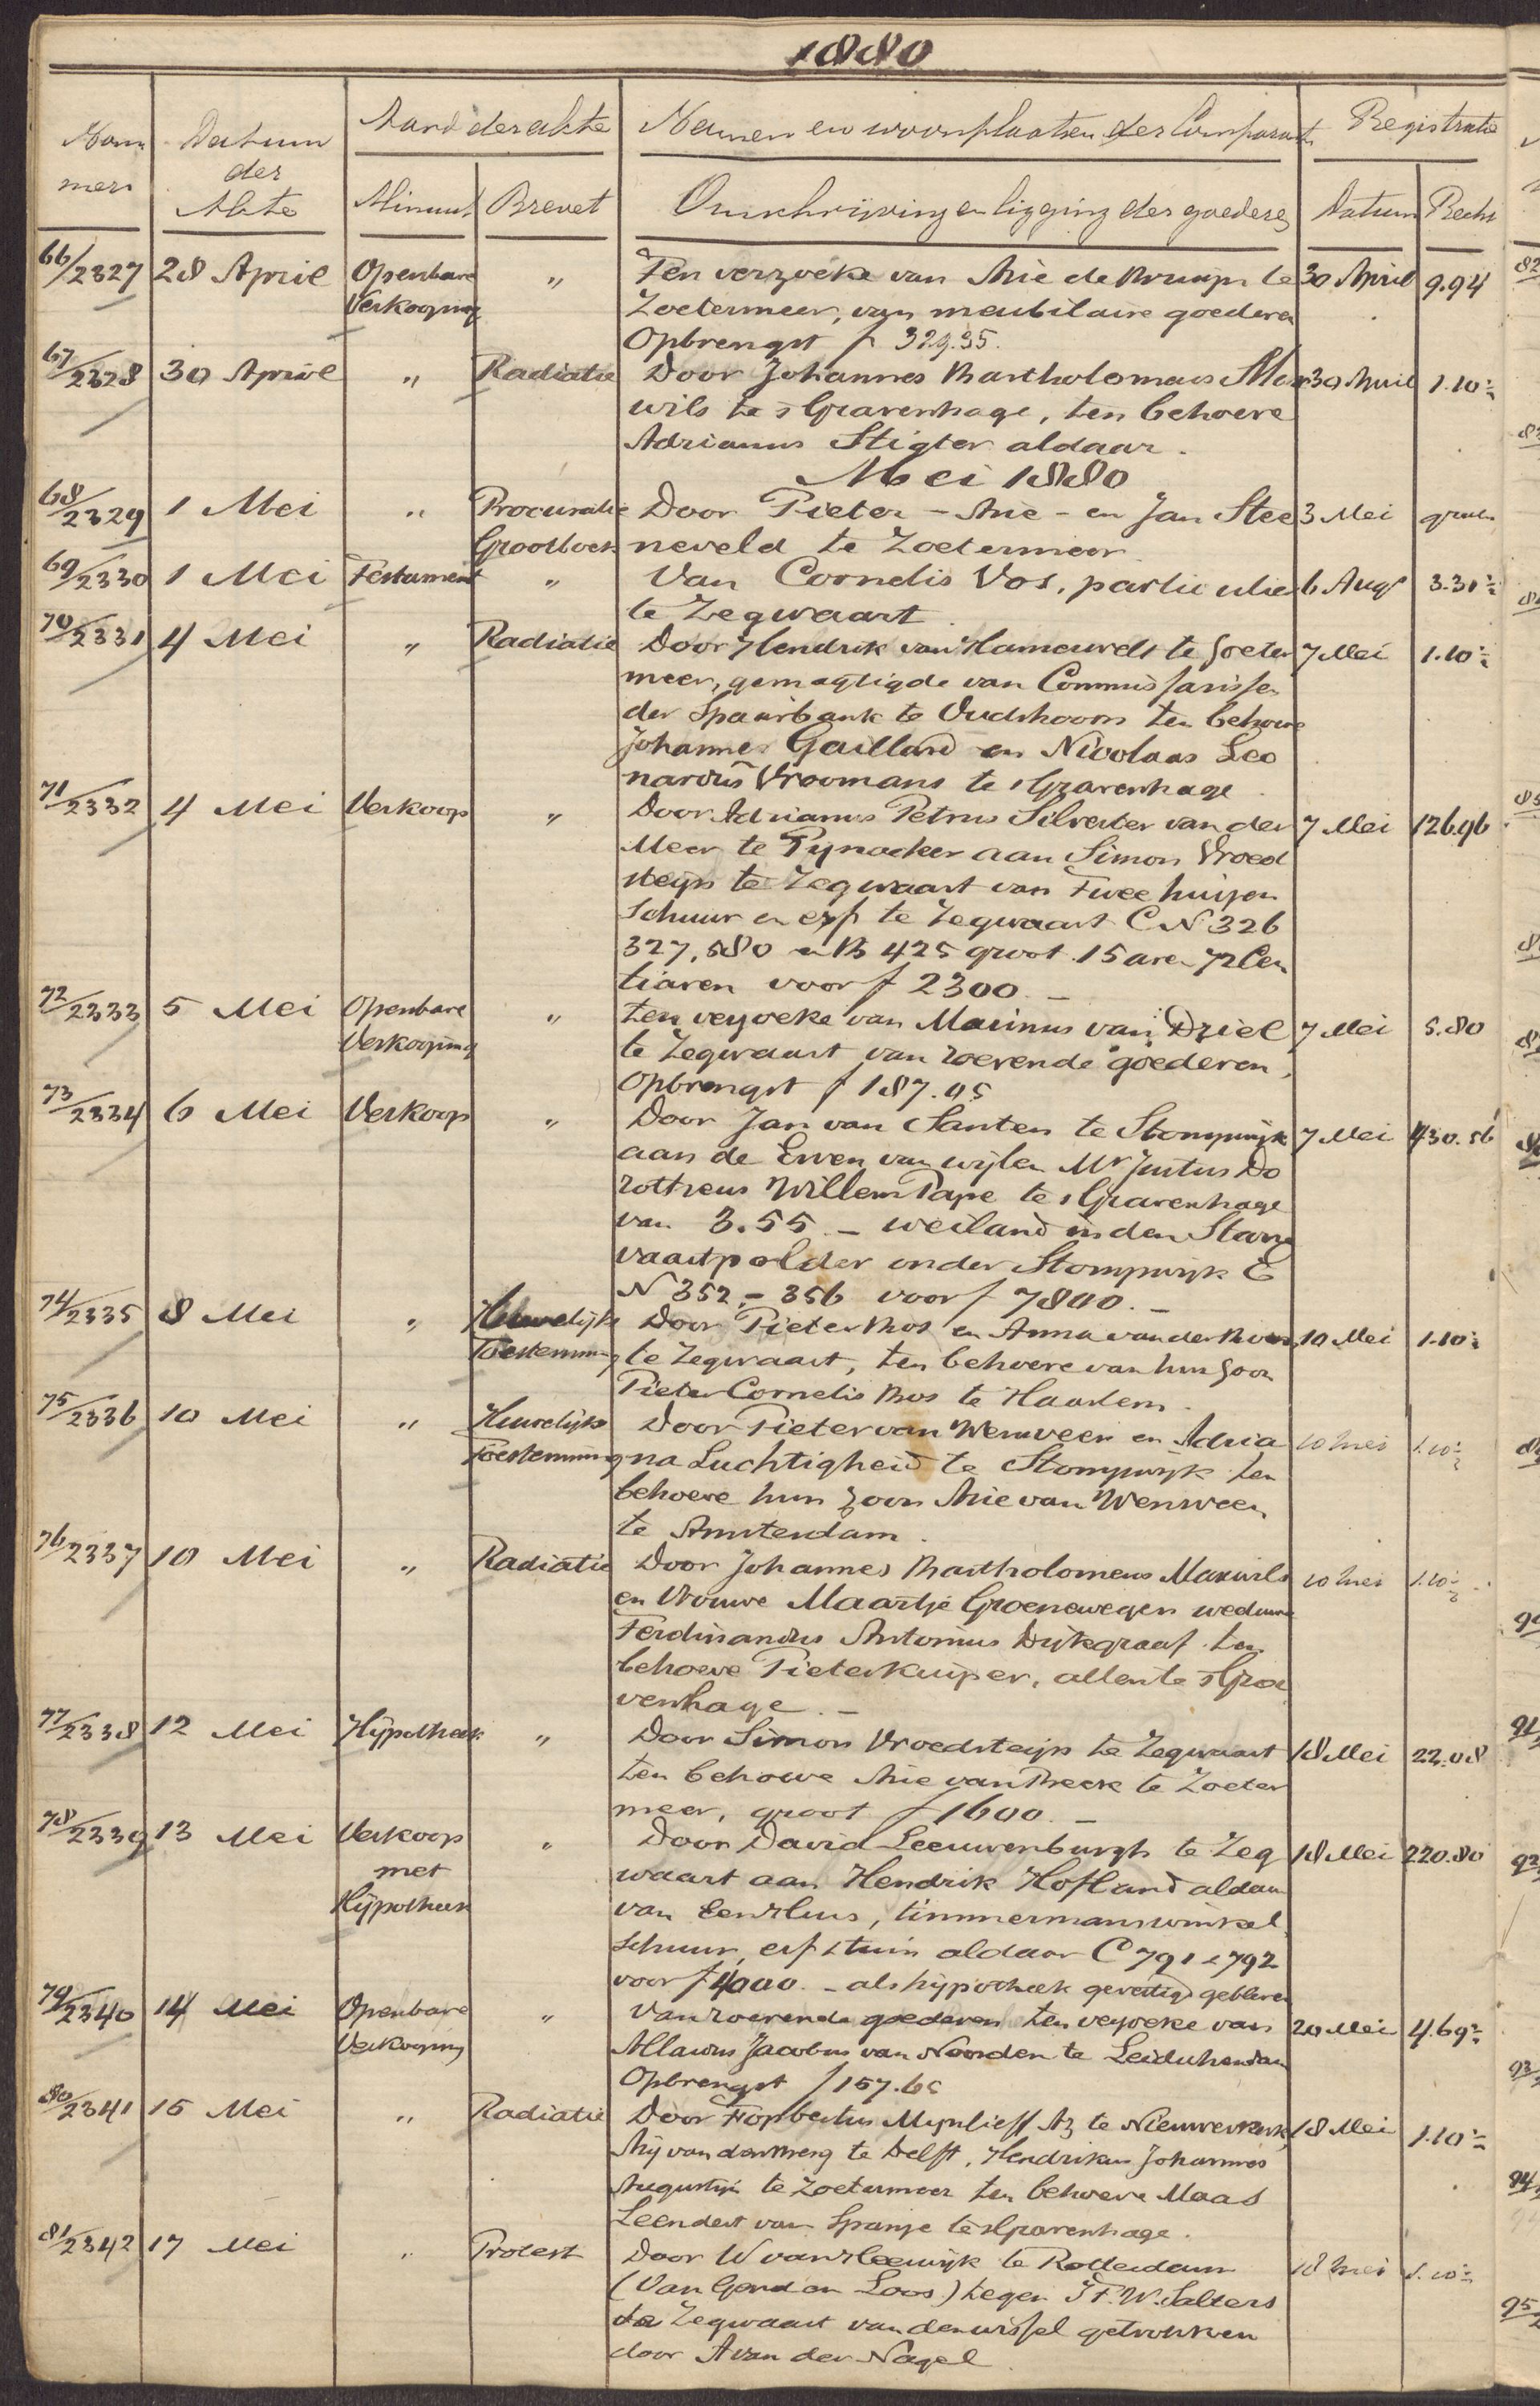 1880
Nom mers
Datum der Akte
Aard der akte
Minuut
Brevet
Namen en woonplaatsen der Comparanten
Omschrijving en ligging der goederen
Registratie
Datum
Recht
66/2327 28 April Openbare " Ten verzoeke van Arie de Bruijn te 30 April 9.94
Verkooping Zoetermeer, van meubilaire goederen
Opbrengst f 329.35.
67/2328 30 April " Radiatie Door Johannes Bartholomeus Max 30 April 1.10½
wils te 's Gravenhage, ten behoeve
Adrianus Stigter aldaar.
Mei 1880
68/2329 1 Mei " Procuratie Door Pieter - Arie - en Jan Stee 3 Mei gratis
Grootboek neveld te Zoetermeer
69/2330 1 Mei Testament " Van Cornelis Vos, particulier 6 Augs 3.31½
te Zegwaart.
70/2331 4 Mei " Radiatie Door Hendrik van Hamerveld te Zoeter 7 Mei 1.10½
meer, gemagtigde van Commissarissen
der Spaarbank te Oudshoorn ten behoeve
Johannes Gaillard en Nicolaas Leo
nardus Vroomans te 's Gravenhage.
71/2332 4 Mei Verkoop " Door Adrianus Petrus Silvester van der 7 Mei 126.96
Meer te Pynacker aan Simon Vroed
steijn te Zegwaart van Twee huizen
schuur en erf te Zegwaart C N 326
327, 580 en B 425 groot 15 aren 72 Cen
tiaren voor f 2300.-
72/2333 5 Mei Openbare " ten verzoeke van Marinus van Driel 7 Mei 5.80
Verkooping te Zegwaart van roerende goederen,
Opbrengst f 187.05
73/2334 6 Mei Verkoop " Door Jan van Santen te Stompwijk 7 Mei 430.56
aan de Erven van wijlen Mr Justus Do
rotheus Willem Pape te 's Gravenhage
van 3.55.- weiland in den Starre
vaartpolder onder Stompwijk E
N 352,- 356 voor f 7800.-
74/2335 8 Mei " Huwelijks Door Pieter Bos en Anna van der 10 Mei 1.10½
Toestemming te Zegwaart, ten behoeve van hun zoon
Pieter Cornelis Bos te Haarlem.
75/2336 10 Mei " Huwelijks Door Pieter van Wenveen en Adria 10 Mei 1.10½
Toestemming na Luchtigheid te Stompwijk ten
behoeve hun zoon Arie van Wenween
te Amsterdam.
76/2337 10 Mei " Radiatie Door Johannes Bartholomeus Maxwils 10 Mei 1.10½
en Vrouwe Maartje Groenewegen weduwe
Ferdinandus Antonius Dijkgraaf ten
behoeve Pieter Kuiper, allen te 's Gra
venhage.-
77/2338 12 Mei Hijpotheek " Door Simon Vroedsteijn te Zegwaart 18 Mei 22.08
ten behoeve Arie van Beek te Zoeter
meer, groot f 1600.-
78/2339 13 Mei Verkoop " Door David Leeuwenburgh te Zeg 18 Mei 220.80
met waart aan Hendrik Hofland aldaar
Hijpotheek van Een Huis, timmermanswinkel
schuur, erf & tuin aldaar C 791 & 792
voor f 4000.- als hijpotheek gevestigd gebleven
79/2340 14 Mei Openbare " Van roerende goederen ten verzoeke van 20 Mei 4.69½
Verkooping Jacobus van Noorden te Leidschendam
Opbrengst f 157.65
80/2341 15 Mei " Radiatie Door Fopbertus Mijnlieff Az te Nieuwerkerk, 18 Mei 1.10½
Arij van den Berg te Delft, Hendrikus Johannes
Augustijn te Zoetermeer ten behoeve Maas
Leendert van Spanje te 's Gravenhage.
81/2342 17 Mei " Protest Door W van Kleewijk te Rotterdam 18 Mei 1.10½
(Van Gend en Loos) tegen J F. W. Salters
te Zegwaart van den wissel getrokken
door A van der Nagel.